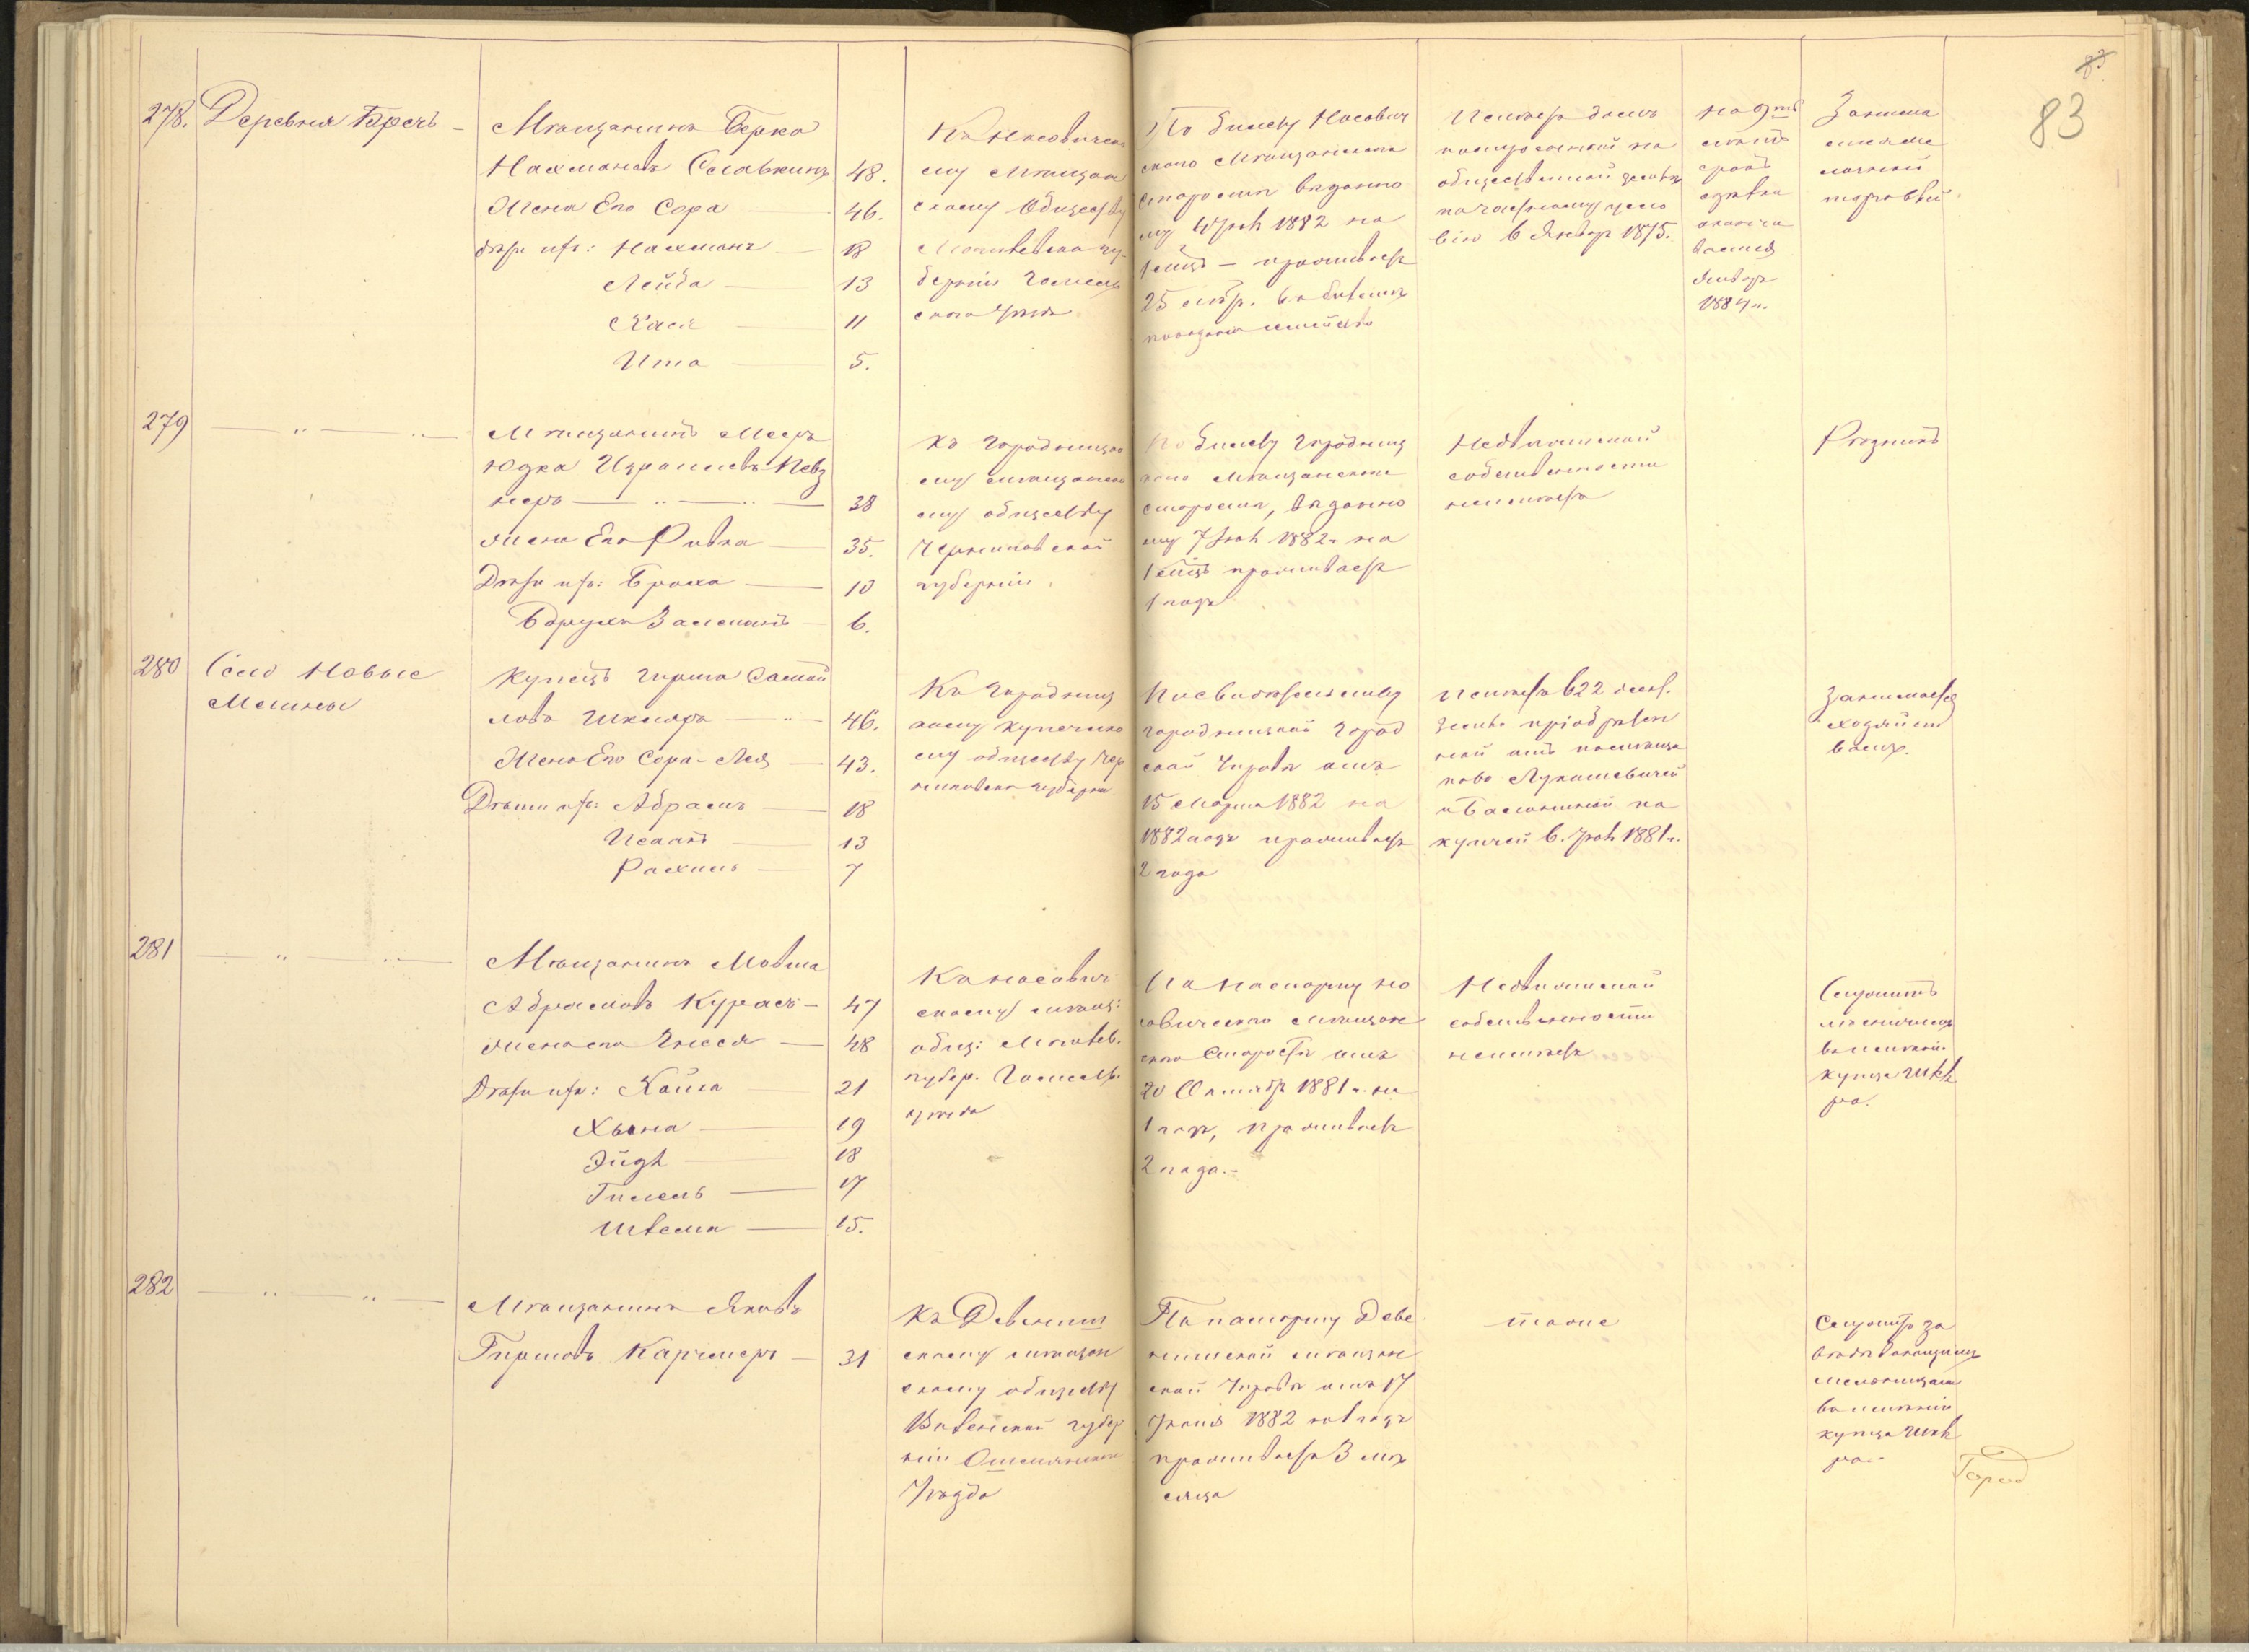 83
83
278. Деревня Бречь
Мѣщанинъ Берка
Нахмановъ Славкинъ 48.
Жена Его Сора 46.
Дѣти ихъ: Нахманъ 18
Лейба 13
Хася 11
Ита 5.
Къ Носовическо
му мѣщан
скому Обществу
Могилевской гу-
берніи Гомель
скаго уѣзда
По билету Носович
скаго Мѣщанскаго
Старосты выданно
му 4 Іюня 1882 на
1 мѣцъ – проживаетъ
25 лѣтъ.
Имѣетъ домъ
построенный на
общественной землѣ
по частному усло
вію въ Январѣ 1875.
на 9ть
лѣтъ
срокъ
Январь
1884 г.
Занима
мѣ
лочной
торговлей
279
Мѣщанинъ Мееръ
Юдка Израилевъ Певз
неръ 38
Жена Его Ривка 35.
Дѣти ихъ: Броха 10
Борухъ Залманъ 6.
Къ Городницко
му мѣщанско
му обществу
Черниговской
губерніи
По билету Городниц
каго Мѣщанскаго
старосты, выданно
му 7 Іюня 1882 г. на
1 мѣцъ проживаетъ
1 годъ
Недвижимой
собственности
неимѣетъ
Рѣзникъ
280 Село Новые
Млины
Купецъ Гирша Самой
ловъ Шкляръ 46.
Жена Его Сора-Лея 43.
Дѣти ихъ: Абрамъ 18
Исаакъ 13
Рахиль 7
Къ Городниц
кому купеческо
му обществу Чер
ниговской губерніи
По свидѣтельству
Городницкой Город
ской Управы отъ
15 Марта 1882 на
1882 годъ проживаетъ
2 года
Имѣетъ 622 десят.
земли пріобрѣтен
ной отъ помѣщи
ковъ Лукашевичей
по
купчей въ Іюнѣ 1881 г.
Занимается
хозяйст
вомъ.
281
Мѣщанинъ Мовша
Абрамовъ Курасъ 47
Жена его Гнеся 48
Дѣти ихъ: Хайка 21
Хьена 19
18
Гилель 17
15.
Къ Носович
скому мѣщ:
общ: Могилев.
губер. Гомельс.
уѣзда
По паспорту Но
совическаго Мѣщан
скаго Старосты отъ
20 Октября 1881 г. на
1 годъ, проживаетъ
2 года.-
Недвижимой
собственности
неимѣетъ
Служитъ
лѣсничимъ
въ имѣніи
купца Шкля
ра.
282
Мѣщанинъ Яковъ
Гиршовъ Карчмеръ 31
Къ Девениш
скому мѣщан
скому обществу
Виленской губер
ніи Ошмянскаго
Уѣзда
По паспорту Деве
нишской мѣщан
ской Управы отъ 17
Іюня 1882 на годъ
проживаетъ 3 мѣ
сяца
тоже
Служитъ за
вѣдывающимъ
мельницами
въ имѣніи
купца Шкля
ра
Город